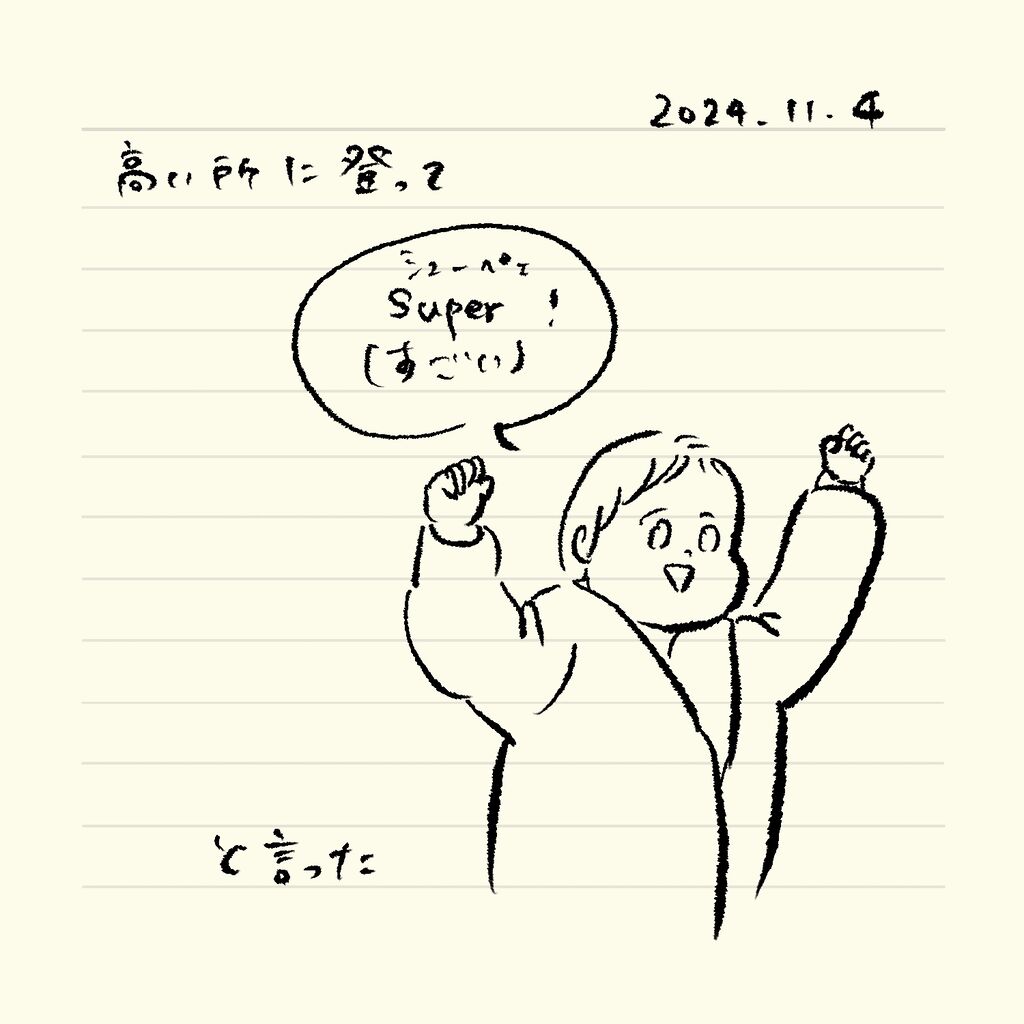 2024.11.4
高い所に登って
シューペェ
Super !
(すごい)
と言った